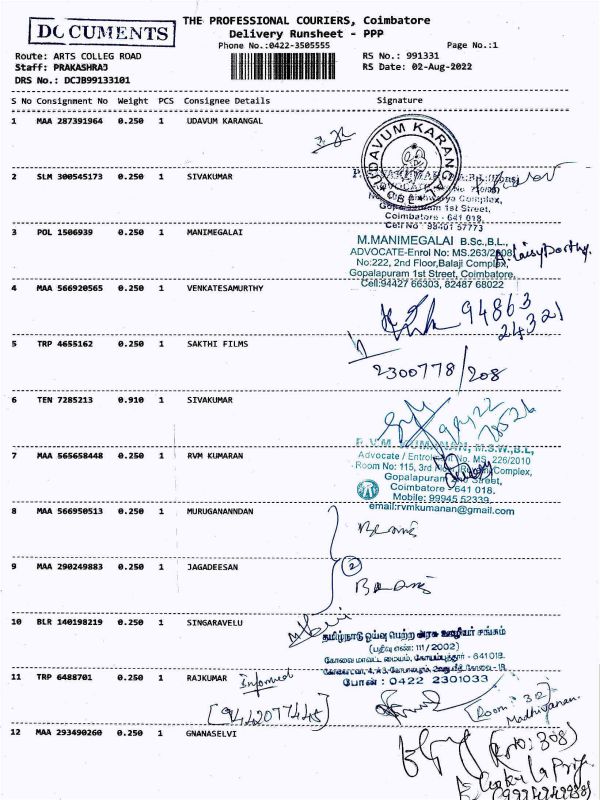 DOCUMENTS
THE PROFESSIONAL COURIERS, Coimbatore
Delivery Runsheet - PPP
Phone No.:0422-3505555
Page No.:1
Route: ARTS COLLEG ROAD
RS No.: 991331
Staff: PRAKASHRAJ
RS Date: 02-Aug-2022
DRS No.: DCJB99133101
S No Consignment No Weight PCS Consignee Details Signature
1 MAA 287391964 0.250 1 UDAVUM KARANGAL
UDAVUM KARANGAL
2 SLM 300545173 0.250 1 SIVAKUMAR
Complex,
Gopalapuram 1st Street,
Coimbatore - 641 018.
Cell No 98401 57773
3 POL 1506939 0.250 1 MANIMEGALAI
M.MANIMEGALAI B.Sc.,B.L.,
ADVOCATE-Enrol No: MS.263/2008
No:222, 2nd Floor,Balaji Complex,
Gopalapuram 1st Street, Coimbatore,
Cell:94427 66303, 82487 68022
4 MAA 566920565 0.250 1 VENKATESAMURTHY
94863
24321
5 TRP 4655162 0.250 1 SAKTHI FILMS
2300778/208
6 TEN 7285213 0.910 1 SIVAKUMAR
R.V.M. KUMANAN, M.S.W.,B.L,
7 MAA 565658448 0.250 1 RVM KUMARAN
Advocate / Entrol No. MS. 226/2010
Room No: 115, 3rd Complex,
Gopalapuram Street,
Coimbatore - 641 018.
Mobile: 99945 52339
email:rvmkumanan@gmail.com
8 MAA 566950513 0.250 1 MURUGANANNDAN
9 MAA 290249883 0.250 1 JAGADEESAN
2
10 BLR 140198219 0.250 1 SINGARAVELU
தமிழ்நாடு ஓய்வு பெற்ற அரசு ஊழியர் சங்கம்
(பதிவு எண்: 111/2002)
கோவை மாவட்ட மையம், கோயம்புத்தூர் - 641018.
போன் : 0422 2301033
11 TRP 6488701 0.250 1 RAJKUMAR Informed
[9442077445]
Room: 302
Madhivanan
12 MAA 293490260 0.250 1 GNANASELVI